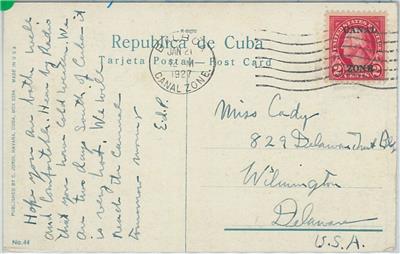 República de Cuba
Tarjeta Postal — Post Card
JAN 21
1927
CANAL ZONE
UNITED STATES POSTAGE
CANAL
ZONE
Hope you are both well
and comfortable. Hear by Radio
that you have cold weather. We
are two days South of Cuba it
is very hot. We will
Reach the Canal
tomorrow morn'g
E.d.P.
Miss Cady
829 Delaware Trust Bldg
Wilmington
Delaware
U.S.A.
PUBLISHED BY C. JORDI, HAVANA, CUBA.
MADE IN U.S.A.
No. 44